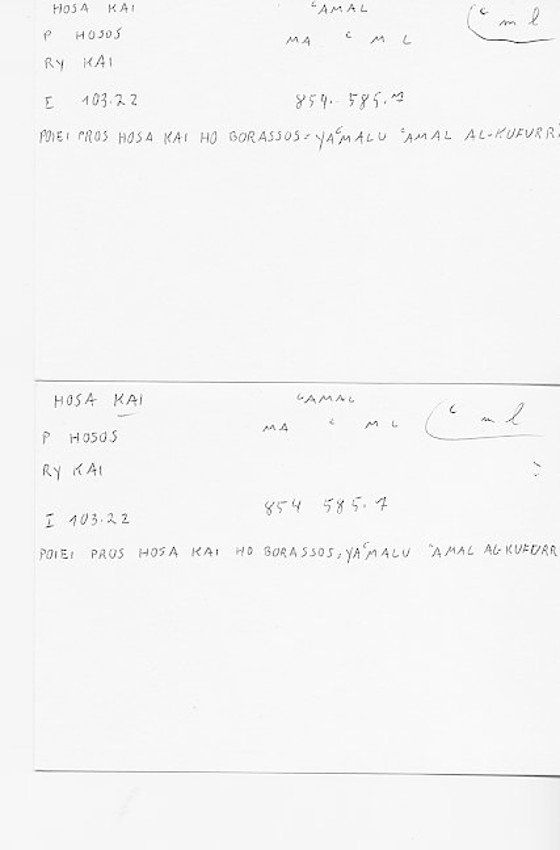 HOSA KAI ʿAMAL
P HOSOS MA ʿ M L ʿ m l
RY KAI
I 103.22 854. 585.7
POIEI PROS HOSA KAI HO BORASSOS = YAʿMALU ʿAMAL AL-KUFURR
HOSA KAI ʿAMAL
P HOSOS MA ʿ M L ʿ m l
RY KAI
I 103.22 854 585.7
POIEI PROS HOSA KAI HO BORASSOS = YAʿMALU ʿAMAL AL-KUFURR